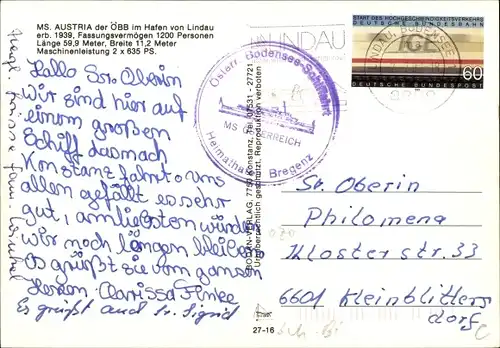 MS. AUSTRIA der ÖBB im Hafen von Lindau
erb. 1939, Fassungsvermögen 1200 Personen
Länge 59,9 Meter, Breite 11,2 Meter
Maschinenleistung 2 x 635 PS.
Hallo Sr. Oberin
wir sind hier auf
einem großen
Schiff dasmach
Konstanz fährt. uns
allen gefällt es sehr
gut, am liebsten würden
wir noch längen bleiben
Es grüßt sie vom ganzen
Herzen Clarissa Finke
Es grüßt auch Sr. Sigrid
Grüsse Fam.
Österr. Bodensee-Schiffahrt
MS ÖSTERREICH
Heimathafen Bregenz
BODAN-VERLAG, 7750 Konstanz, Tel. 07531 - 27721
Urheberrechtlich geschützt, Reproduktion verboten
27-16
LINDAU
LINDAU, BODENSEE
START DES HOCHGESCHWINDIGKEITSVERKEHRS
DEUTSCHE BUNDESBAHN
ICE
60
DEUTSCHE BUNDESPOST
Sr. Oberin
Philomena
Klosterstr. 33
6601 Kleinblitters
dorf